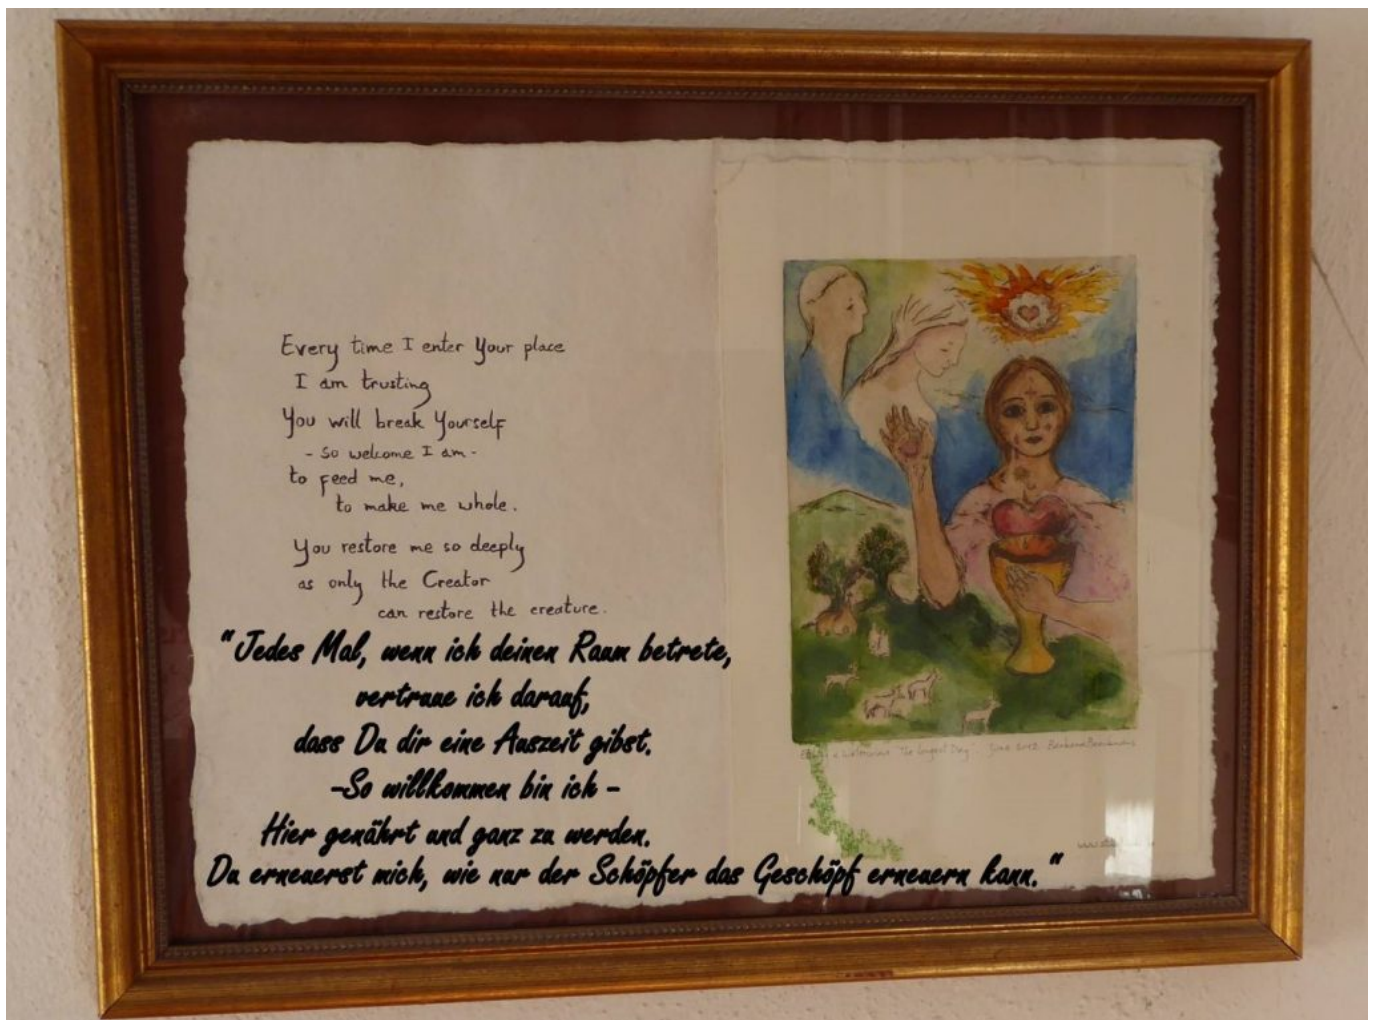 Every time I enter Your place
I am trusting
You will break Yourself
- so welcome I am -
to feed me,
to make me whole.
You restore me so deeply
as only the Creator
can restore the creature.
"Jedes Mal, wenn ich deinen Raum betrete,
vertraue ich darauf,
dass Du dir eine Auszeit gibst.
-So willkommen bin ich -
Hier genährt und ganz zu werden.
Du erneuerst mich, wie nur der Schöpfer das Geschöpf erneuern kann."
Day" June